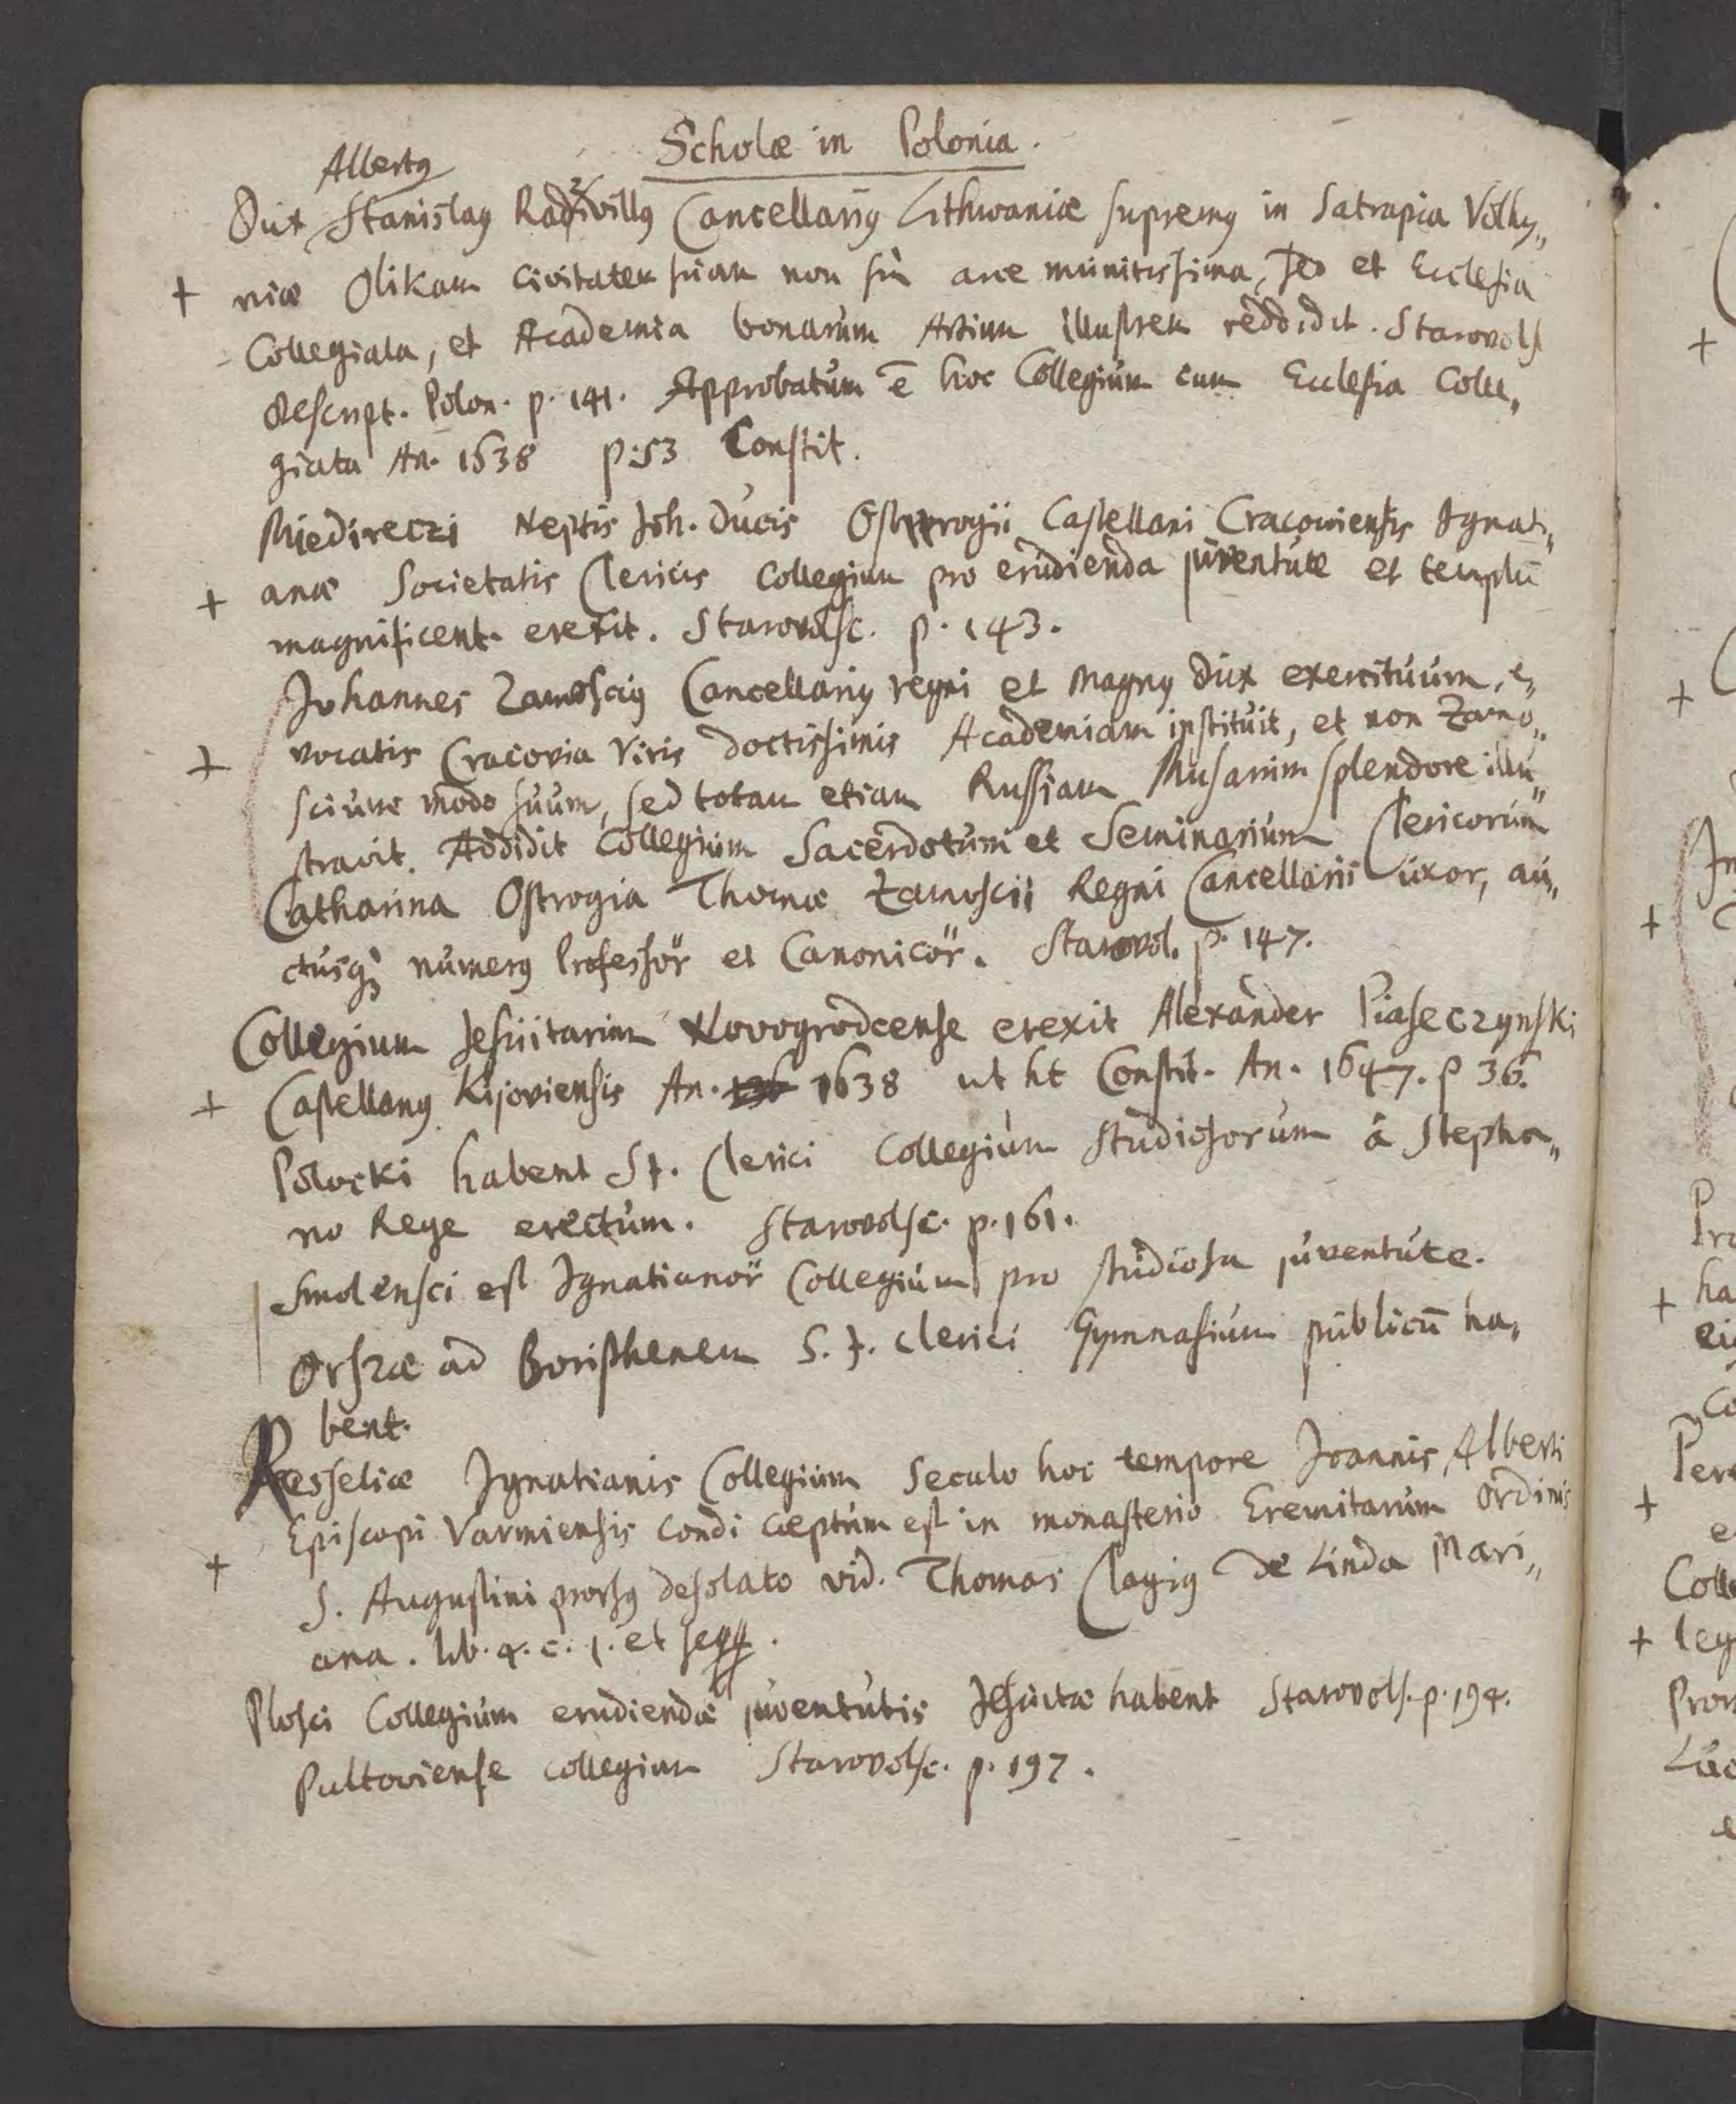 Scholæ in Polonia.
Albertus
Dux Stanislaus Radzivillus Cancellarius Lithwaniæ supremus in Satrapia Volhy„
+ niæ Olikam civitatem suam non sũ arce munitissima, sed et Ecclesia
Collegiata, et Academia bonarum Artium illustrem reddidit. Starovols
Descript. Polon. p. 141. Approbatum ē hoc Collegium cum Ecclesia Colle„
giata An. 1638 p. 53 Constit.
Miedireczi Neptis Joh. Ducis Ostrogii Castellani Cracoviensis Ignati„
+ anæ Societatis Clericis Collegium pro erudienda juventute et templũ
magnificent. erexit. Starovolsc. p. 143.
Johannes Zamoscius Cancellarius regni et magnus Dux exercituum, e„
+ vocatis Cracovia Viris doctissimis Academiam instituit, et non Zamo„
scium modo suum, sed totam etiam Russiam Musarum splendore illu„
stravit. Addidit Collegium Sacerdotum et Seminarium Clericorum
Catharina Ostrogia Thomæ Zamoscii Regni Cancellarii uxor, au„
ctusq; numerus Professor̃ et Canonicor̃. Starovol. p. 147.
Collegium Jesuitarum Novogrodcense erexit Alexander Piaseczynski
+ Castellanus Kijoviensis An. 1638 ut ht Constit. An. 1647. p 36.
Polocki habent S J. Clerici Collegium Studiosorum â Stepha„
no Rege erectum. Starovolsc. p. 161.
Smolensci est Ignatianor̃ Collegium pro studiosa juventute.
Orszæ ad Boristhenem S. J. Clerici Gymnasium publicũ ha„
bent.
Resseliæ Ignatianis Collegium Seculo hoc tempore Joannis Alberti
Episcopi Varmiensis condi cœptum est in monasterio Eremitarum Ordinis
+ S. Augustini prorsus desolato vid. Thomas Clagius de Linda Mari„
ana. lib. 4. c. 1. et seqq.
Plosci Collegium erudiendæ juventutis Jesuitæ habent Starovols. p. 194.
Pultoviense collegium Starovolsc. p. 197.